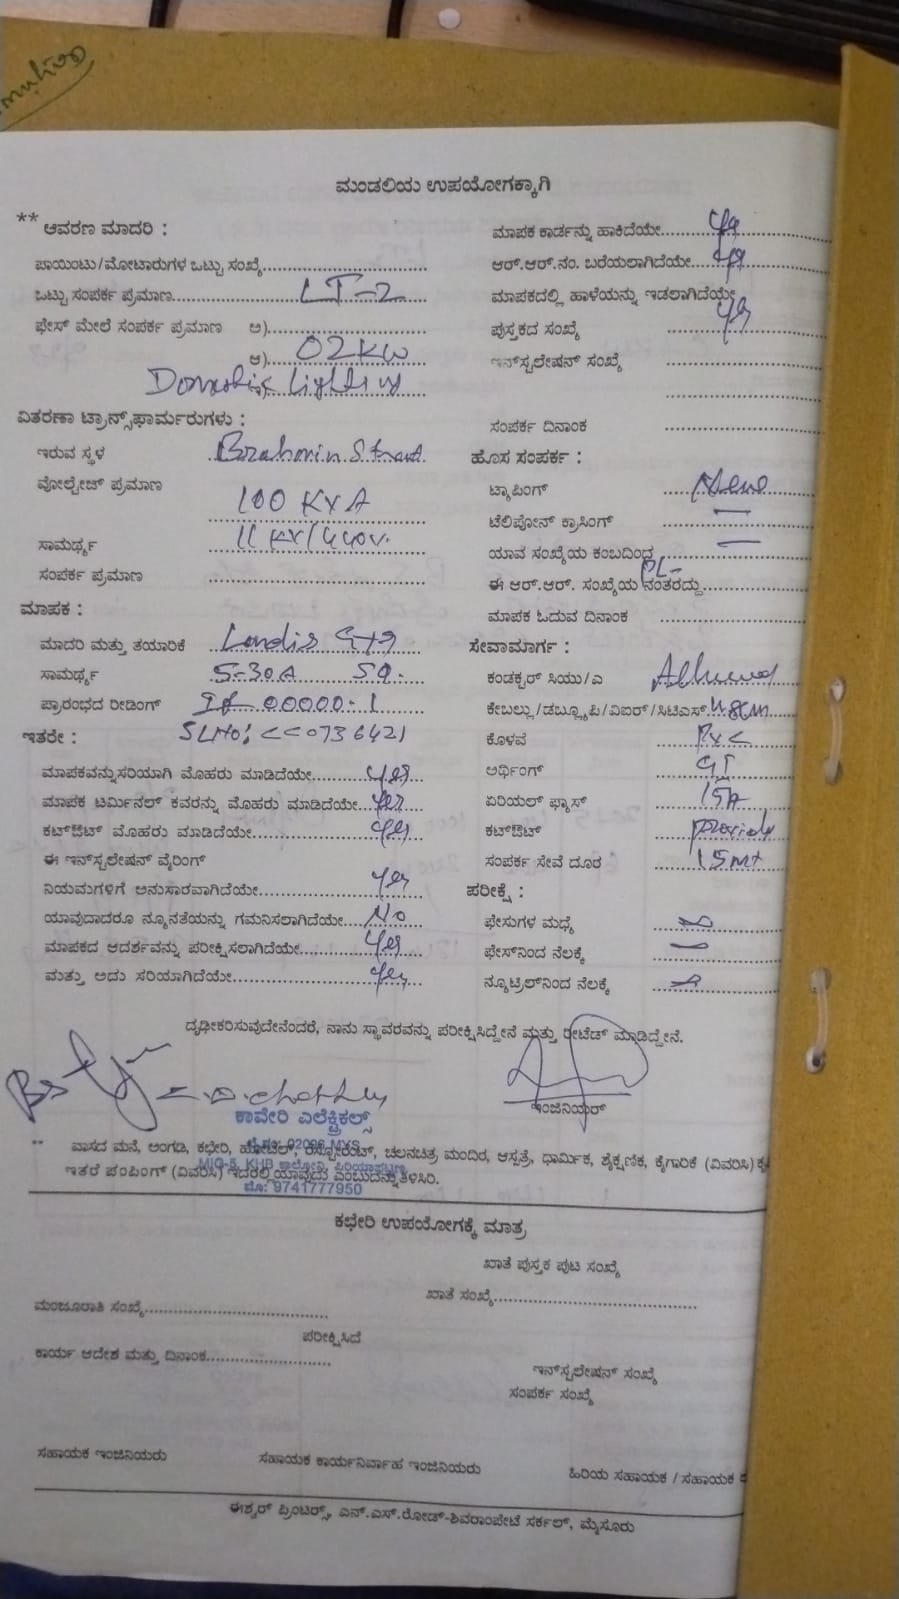 ಮಂಡಲಿಯ ಉಪಯೋಗಕ್ಕಾಗಿ
** ಆವರಣ ಮಾದರಿ :
ಪಾಯಿಂಟು/ಮೋಟಾರುಗಳ ಒಟ್ಟು ಸಂಖ್ಯೆ
ಒಟ್ಟು ಸಂಪರ್ಕ ಪ್ರಮಾಣ LT-2
ಫೇಸ್ ಮೇಲೆ ಸಂಪರ್ಕ ಪ್ರಮಾಣ ಅ)
ಆ) 02 KW
Domestic Lighting
ವಿತರಣಾ ಟ್ರಾನ್ಸ್‌ಫಾರ್ಮರುಗಳು :
ಇರುವ ಸ್ಥಳ Brahmin Street
ವೋಲ್ಟೇಜ್ ಪ್ರಮಾಣ 100 KVA
ಸಾಮರ್ಥ್ಯ 11 KV/440V.
ಸಂಪರ್ಕ ಪ್ರಮಾಣ
ಮಾಪಕ :
ಮಾದರಿ ಮತ್ತು ತಯಾರಿಕೆ Landis
ಸಾಮರ್ಥ್ಯ 5-30A
ಪ್ರಾರಂಭದ ರೀಡಿಂಗ್ 00000.1
ಇತರೇ : SLNo: CC0736421
ಮಾಪಕವನ್ನು ಸರಿಯಾಗಿ ಮೊಹರು ಮಾಡಿದೆಯೇ yes
ಮಾಪಕ ಟರ್ಮಿನಲ್ ಕವರನ್ನು ಮೊಹರು ಮಾಡಿದೆಯೇ yes
ಕಟ್‌ಔಟ್ ಮೊಹರು ಮಾಡಿದೆಯೇ yes
ಈ ಇನ್‌ಸ್ಟಲೇಷನ್ ವೈರಿಂಗ್
ನಿಯಮಗಳಿಗೆ ಅನುಸಾರವಾಗಿದೆಯೇ yes
ಯಾವುದಾದರೂ ನ್ಯೂನತೆಯನ್ನು ಗಮನಿಸಲಾಗಿದೆಯೇ No
ಮಾಪಕದ ಆದರ್ಶವನ್ನು ಪರೀಕ್ಷಿಸಲಾಗಿದೆಯೇ Yes
ಮತ್ತು ಅದು ಸರಿಯಾಗಿದೆಯೇ yes
ಮಾಪಕ ಕಾರ್ಡನ್ನು ಹಾಕಿದೆಯೇ
ಆರ್.ಆರ್.ನಂ. ಬರೆಯಲಾಗಿದೆಯೇ
ಮಾಪಕದಲ್ಲಿ ಹಾಳೆಯನ್ನು ಇಡಲಾಗಿದೆಯೇ
ಪುಸ್ತಕದ ಸಂಖ್ಯೆ
ಇನ್‌ಸ್ಟಲೇಷನ್ ಸಂಖ್ಯೆ
ಸಂಪರ್ಕ ದಿನಾಂಕ
ಹೊಸ ಸಂಪರ್ಕ :
ಟ್ಯಾಪಿಂಗ್
ಟೆಲಿಪೋನ್ ಕ್ರಾಸಿಂಗ್ —
ಯಾವ ಸಂಖ್ಯೆಯ ಕಂಬದಿಂದ —
ಈ ಆರ್.ಆರ್. ಸಂಖ್ಯೆಯ ನಂತರದ್ದು
ಮಾಪಕ ಓದುವ ದಿನಾಂಕ
ಸೇವಾಮಾರ್ಗ :
ಕಂಡಕ್ಟರ್ ಸಿಯು/ಎ
ಕೇಬಲ್ಲು/ಡಬ್ಲ್ಯೂಪಿ/ವಿಐರ್/ಸಿಟಿಎಸ್
ಕೊಳವೆ PVC
ಅರ್ಥಿಂಗ್ GI
ಏರಿಯಲ್ ಫ್ಯೂಸ್ 15A
ಕಟ್‌ಔಟ್
ಸಂಪರ್ಕ ಸೇವೆ ದೂರ 15 mt
ಪರೀಕ್ಷೆ :
ಫೇಸುಗಳ ಮಧ್ಯೆ
ಫೇಸ್‌ನಿಂದ ನೆಲಕ್ಕೆ
ನ್ಯೂಟ್ರಲ್‌ನಿಂದ ನೆಲಕ್ಕೆ
ದೃಢೀಕರಿಸುವುದೇನೆಂದರೆ, ನಾನು ಸ್ಥಾವರವನ್ನು ಪರೀಕ್ಷಿಸಿದ್ದೇನೆ ಮತ್ತು ರೀಟೆಡ್ ಮಾಡಿದ್ದೇನೆ.
ಇಂಜಿನಿಯರ್
ಕಾವೇರಿ ಎಲೆಕ್ಟ್ರಿಕಲ್ಸ್
** ವಾಸದ ಮನೆ, ಅಂಗಡಿ, ಕಛೇರಿ, ಹೋಟೆಲ್, ರೆಸ್ಟೋರೆಂಟ್, ಚಲನಚಿತ್ರ ಮಂದಿರ, ಆಸ್ಪತ್ರೆ, ಧಾರ್ಮಿಕ, ಶೈಕ್ಷಣಿಕ, ಕೈಗಾರಿಕೆ (ವಿವರಿಸಿ)
ಇತರೆ ಪಂಪಿಂಗ್ (ವಿವರಿಸಿ) ಇದರಲ್ಲಿ ಯಾವುದು ಎಂಬುದನ್ನು ತಿಳಿಸಿರಿ.
ಮೊ: 9741777950
ಕಛೇರಿ ಉಪಯೋಗಕ್ಕೆ ಮಾತ್ರ
ಖಾತೆ ಪುಸ್ತಕ ಪುಟ ಸಂಖ್ಯೆ
ಖಾತೆ ಸಂಖ್ಯೆ
ಮಂಜೂರಾತಿ ಸಂಖ್ಯೆ
ಪರೀಕ್ಷಿಸಿದೆ
ಕಾರ್ಯ ಆದೇಶ ಮತ್ತು ದಿನಾಂಕ
ಇನ್‌ಸ್ಟಲೇಷನ್ ಸಂಖ್ಯೆ
ಸಂಪರ್ಕ ಸಂಖ್ಯೆ
ಸಹಾಯಕ ಇಂಜಿನಿಯರು ಸಹಾಯಕ ಕಾರ್ಯನಿರ್ವಾಹ ಇಂಜಿನಿಯರು ಹಿರಿಯ ಸಹಾಯಕ / ಸಹಾಯಕ
ಈಶ್ವರ್ ಪ್ರಿಂಟರ್ಸ್, ಎನ್.ಎಸ್.ರೋಡ್-ಶಿವರಾಂಪೇಟೆ ಸರ್ಕಲ್, ಮೈಸೂರು